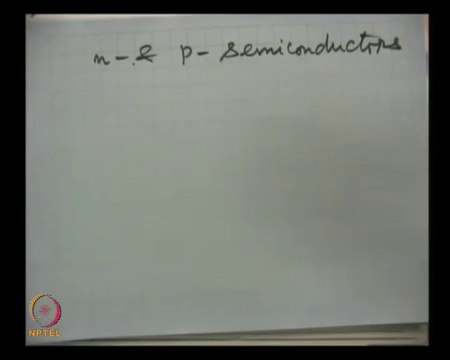 n- & p- semiconductors
NPTEL